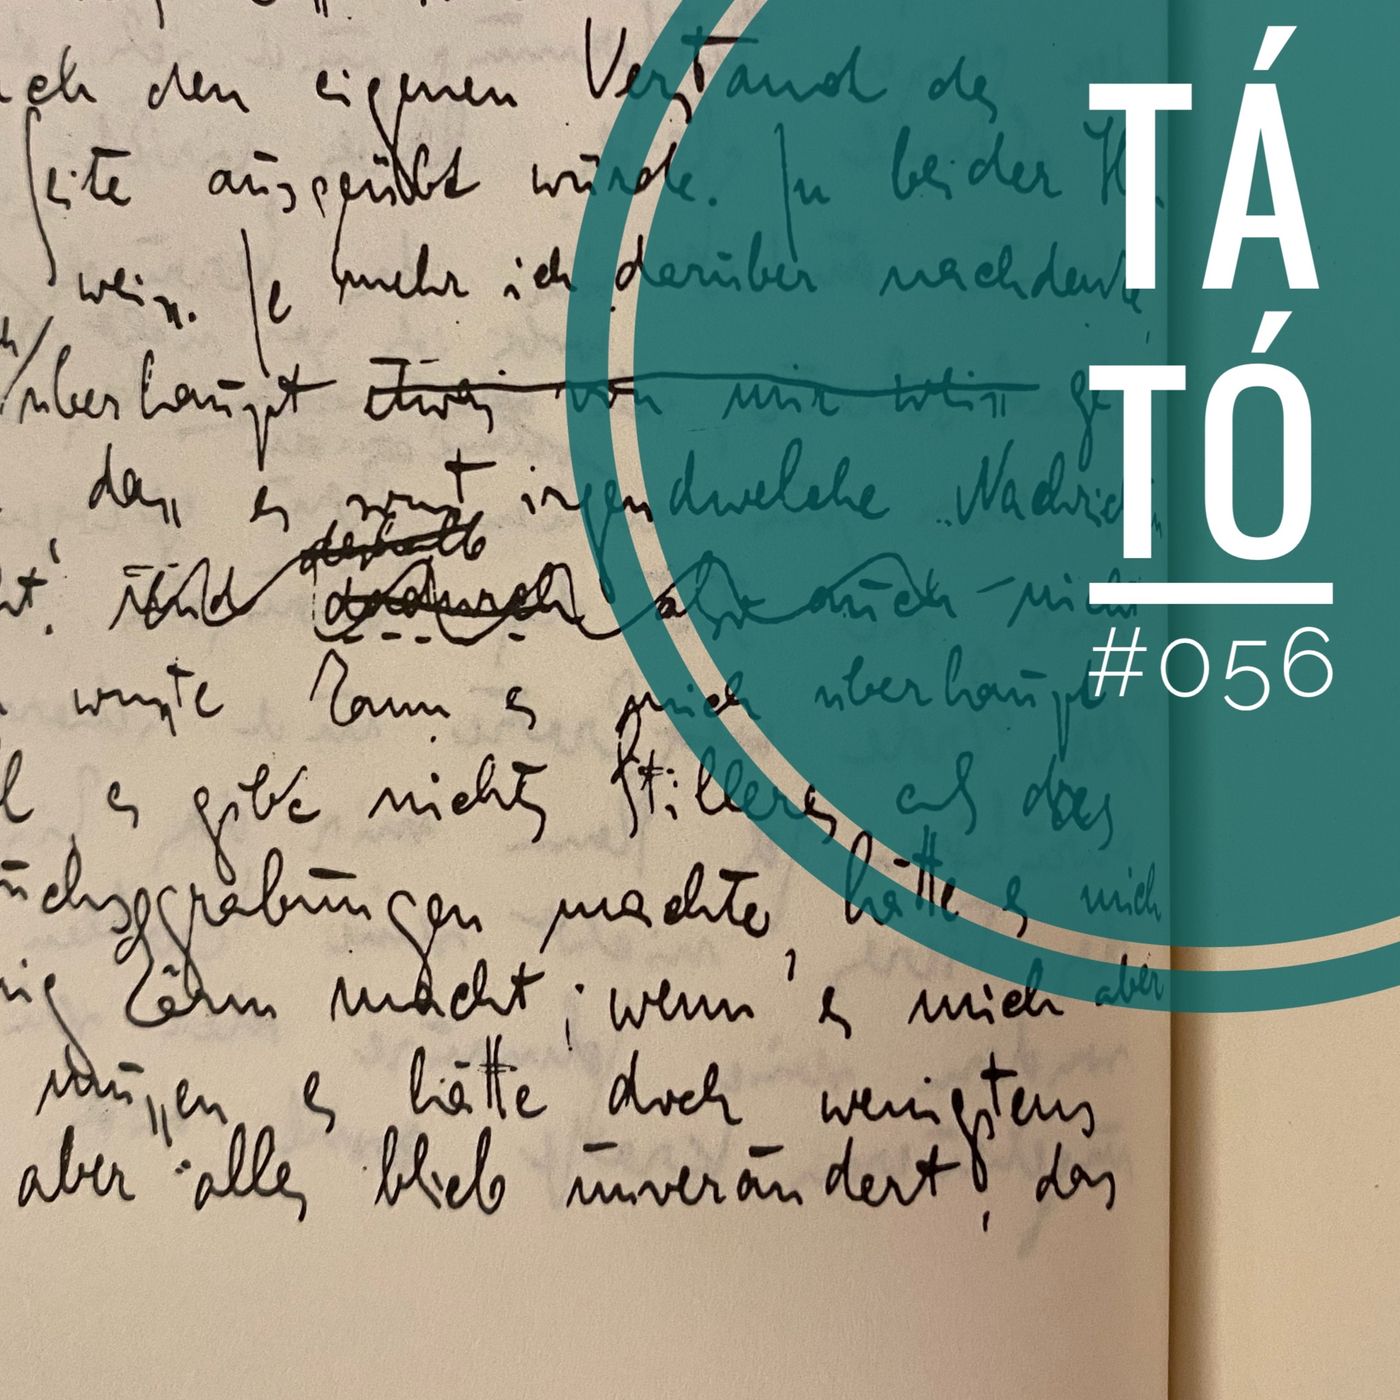 den eigenen Verstand des
Seite ausgeübt würde. In beider
weiss. Je mehr ich darüber nachdenke,
überhaupt etwas von mir weiss ge
dass es sonst irgendwelche „Nachrich
deshalb
Und dadurch also auch – nicht
wusste kann es mich überhaupt
es gibt nichts Stilleres als
grabungen machte, hätte es mich
Lärm macht; wenn es mich aber
müssen es hätte doch wenigstens
aber alles blieb unverändert, das
TÁ
TÓ
#056